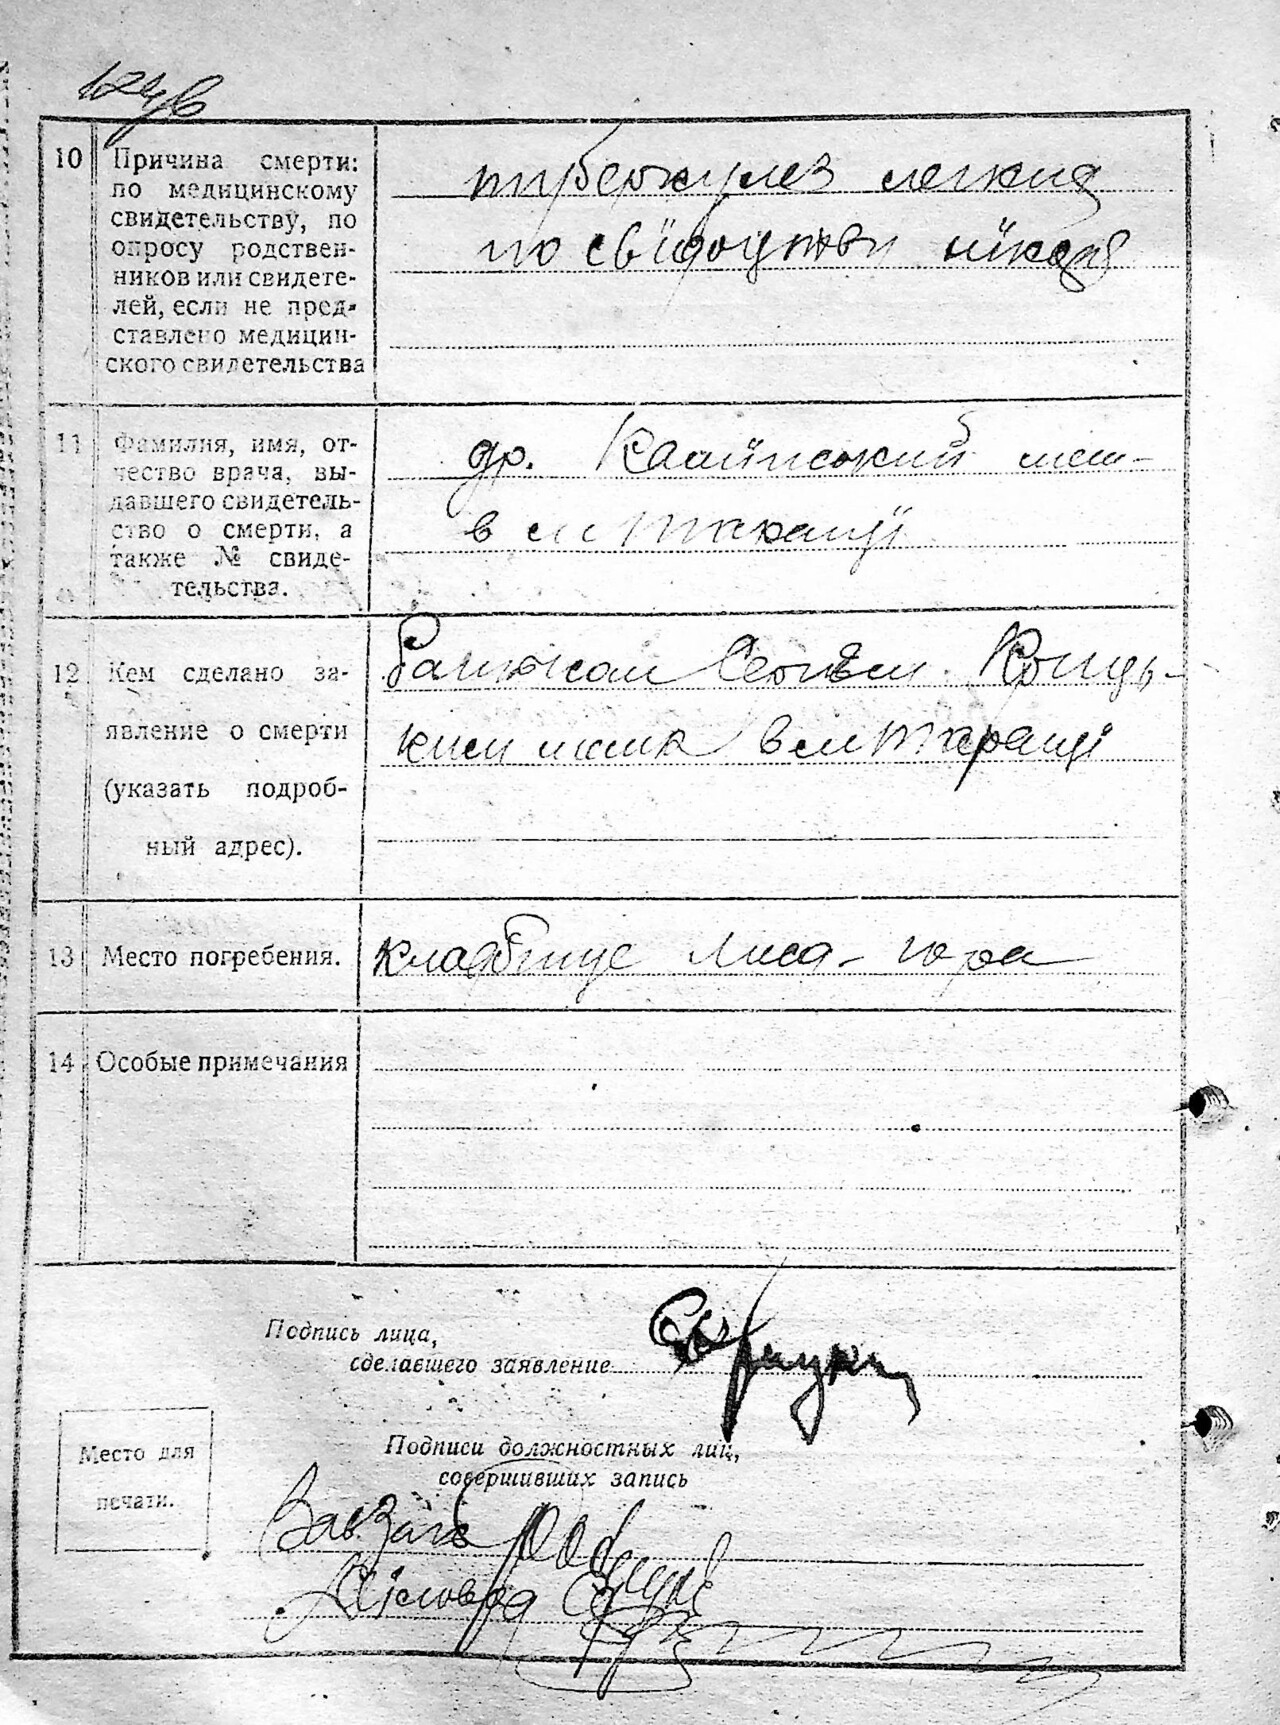 10 Причина смерти:
по медицинскому
свидетельству, по
опросу родствен-
ников или свидете-
лей, если не пред-
ставлено медицин-
ского свидетельства
туберкулез легких
по свідоцтву лікаря
11 Фамилия, имя, от-
чество врача, вы-
давшего свидетель-
ство о смерти, а
также № свиде-
тельства.
др.
в м Таращі
12 Кем сделано за-
явление о смерти
(указать подроб-
ный адрес).
в м Таращі
13 Место погребения.
кладбище Лиса-гора
14 Особые примечания
Подпись лица,
сделавшего заявление
Подписи должностных лиц,
совершивших запись
Место для
печати.
Зав Загс
Діловод